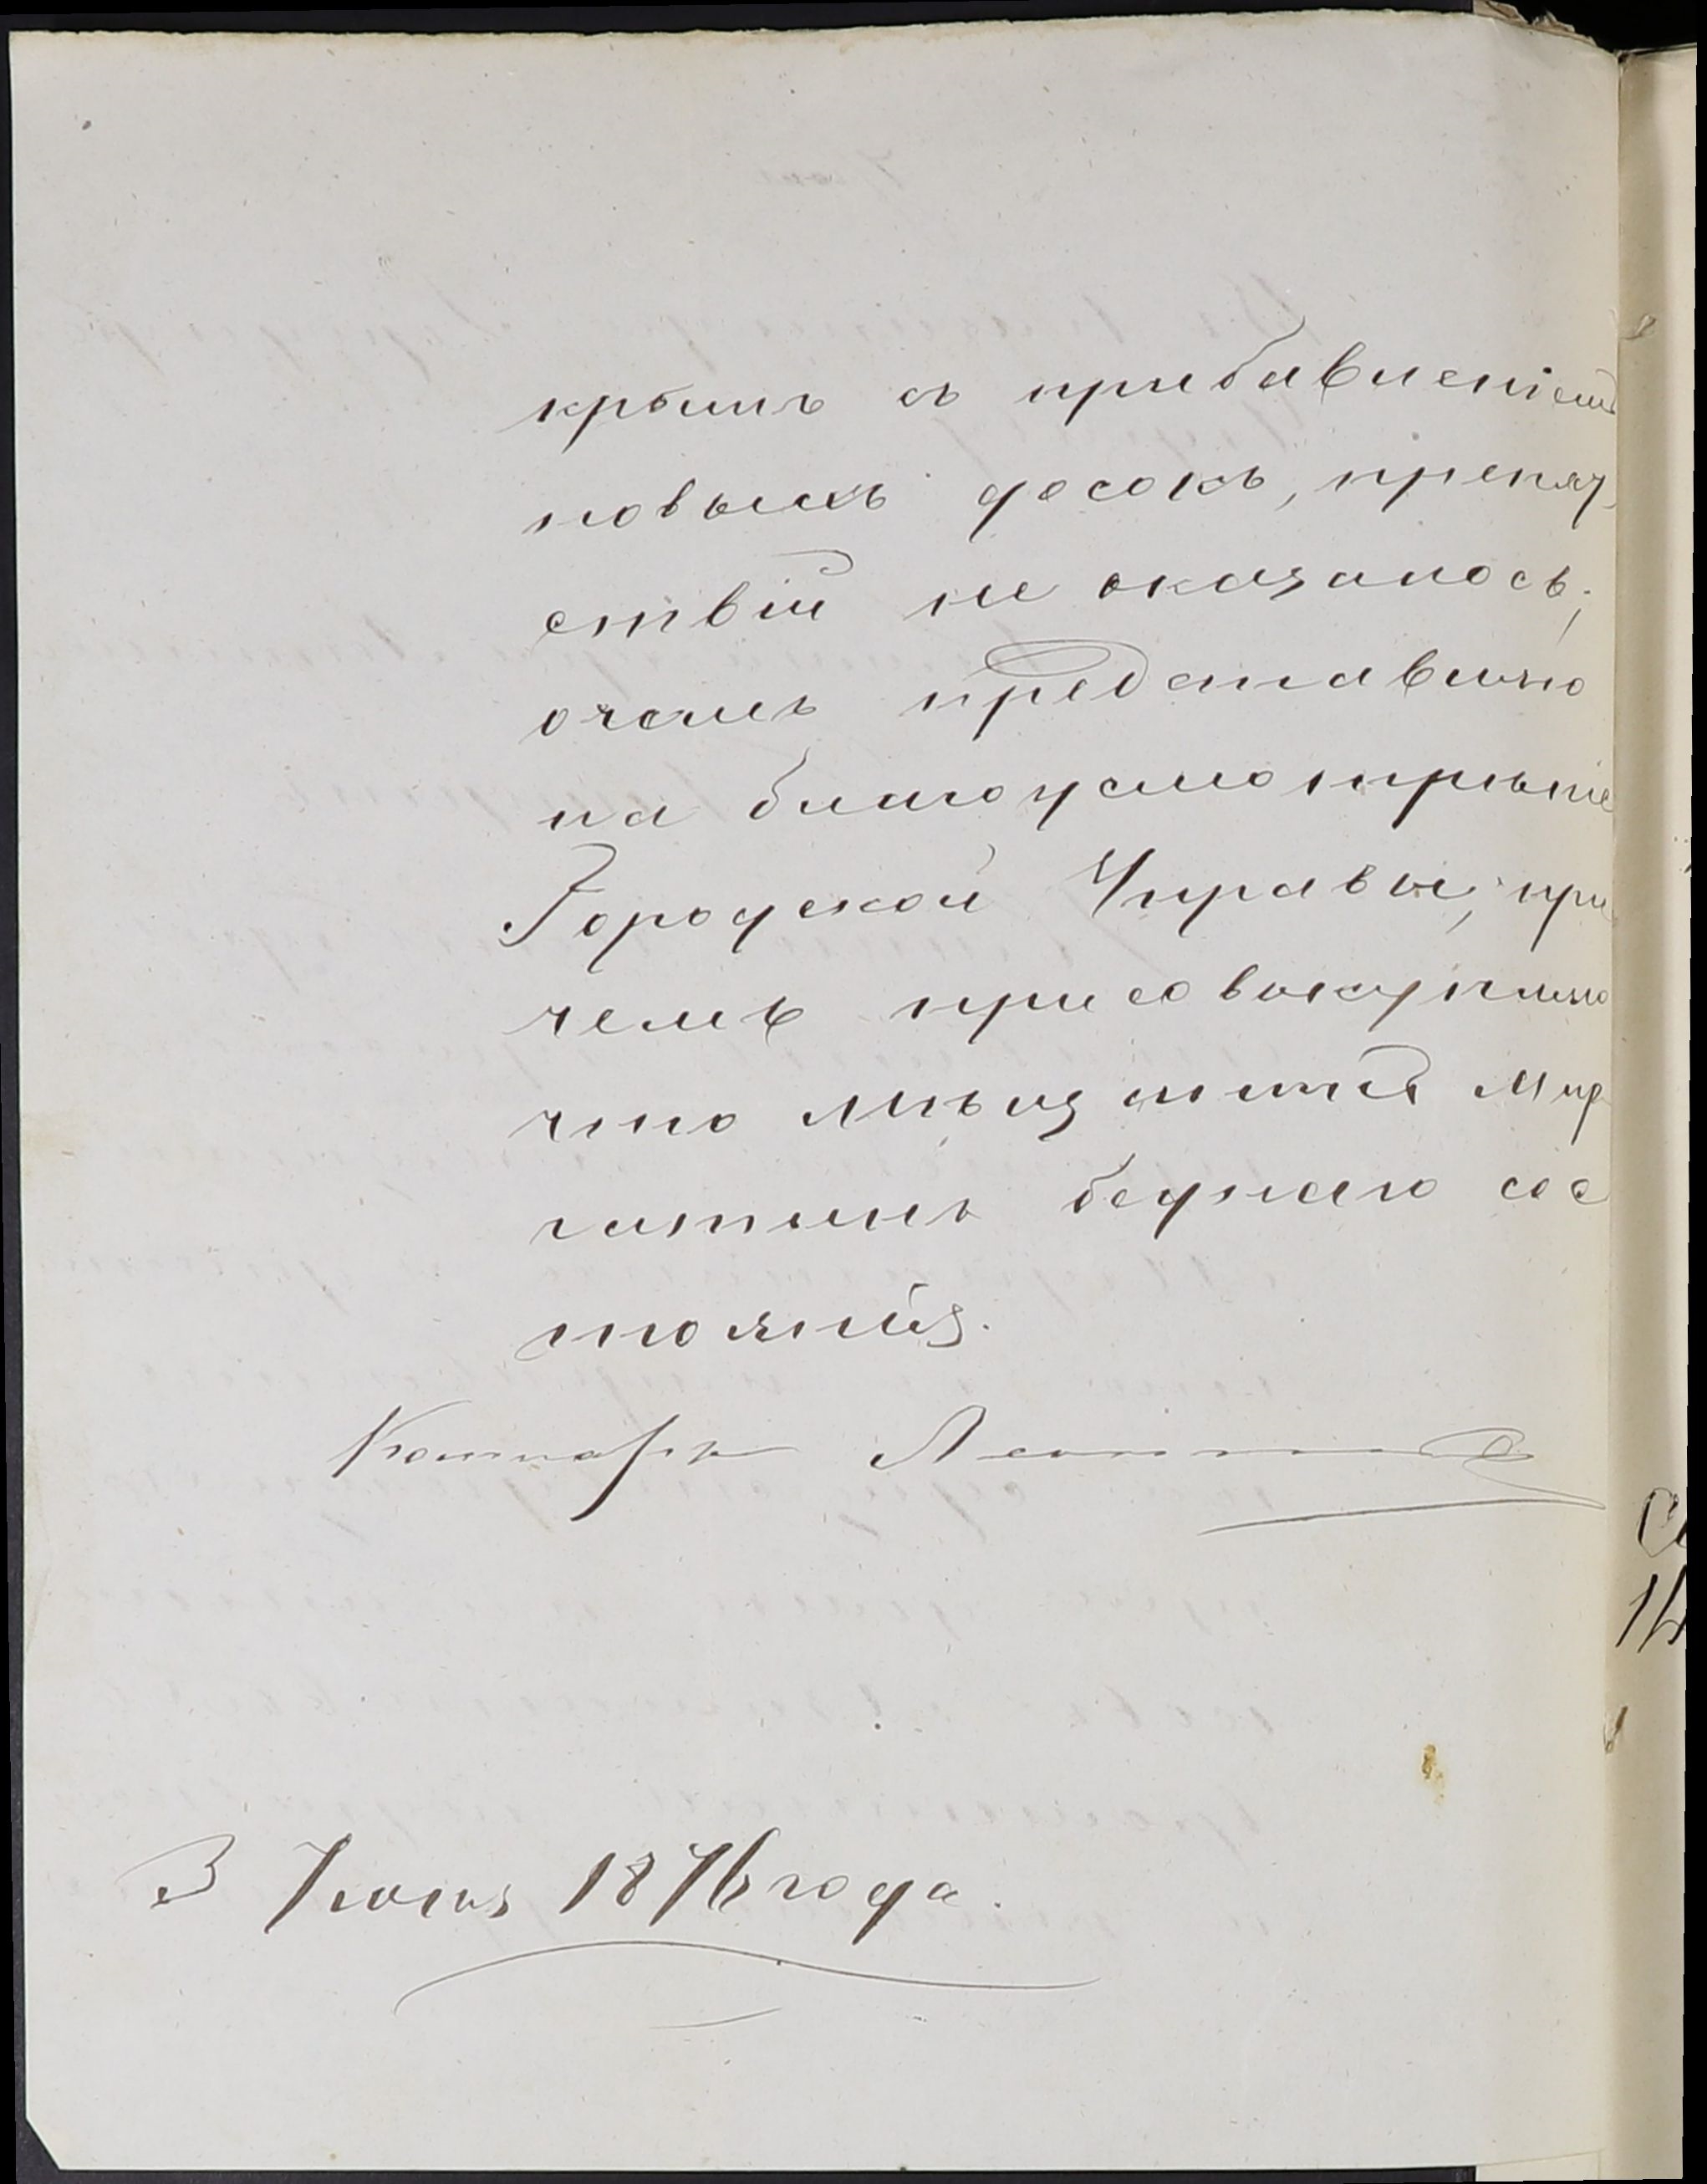 крыши съ прибавленіемъ
новыхъ досокъ, препят
ствій не оказалось;
о чемъ представляю
на благоусмотрѣніе
Городской Управы, при
чемъ присовокупляю
что Мѣщанинъ
бѣднаго сос
тоянія.
3 Іюня 1876 года.